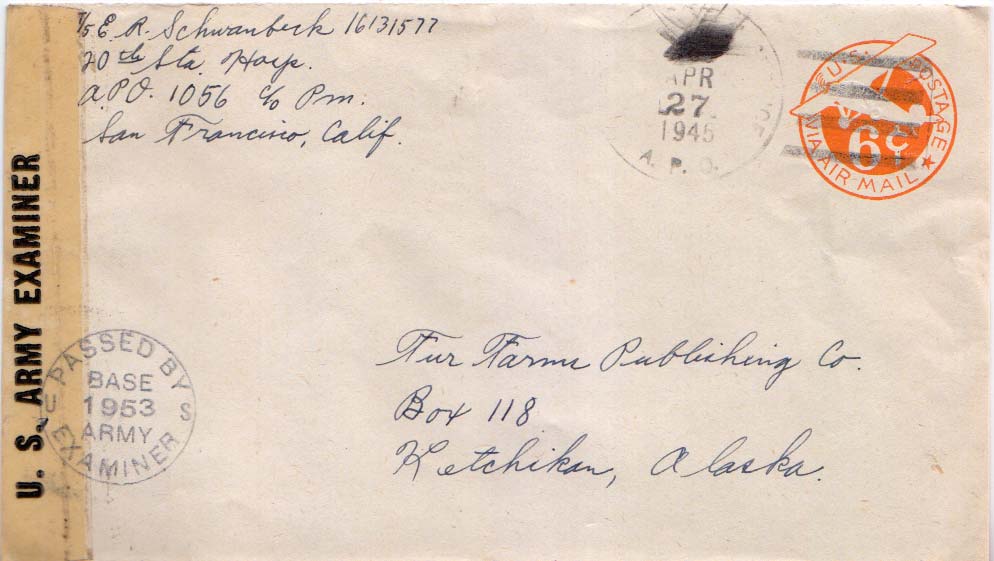 T/5 E. R. Schwanbeck 16131577
20th Sta. Hosp.
A.P.O. 1056 c/o Pm.
San Francisco, Calif.
APR
27
1945
A. P. O.
U.S. POSTAGE
6¢
VIA AIR MAIL
U. S. ARMY EXAMINER
PASSED BY
BASE
U 1953 S
ARMY
EXAMINER
Fur Farms Publishing Co.
Box 118
Ketchikan, Alaska.